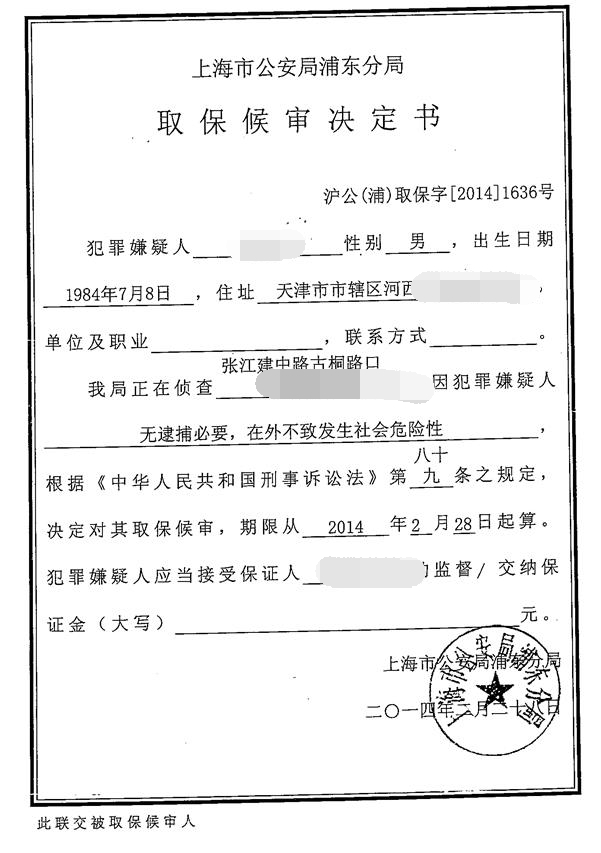 上海市公安局浦东分局
取保候审决定书
沪公(浦)取保字[2014]1636号
犯罪嫌疑人 性别 男 ，出生日期
1984年7月8日 ，住址 天津市市辖区河西 。
单位及职业 ，联系方式 。
张江建中路古桐路口
我局正在侦查 因犯罪嫌疑人
无逮捕必要，在外不致发生社会危险性 ，
八十
根据《中华人民共和国刑事诉讼法》第 九 条之规定，
决定对其取保候审，期限从 2014 年2 月28日起算。
犯罪嫌疑人应当接受保证人 的监督/ 交纳保
证金（大写） 元。
上海市公安局浦东分局
上海市公安局浦东分局
二〇一四年二月二十八日
此联交被取保候审人